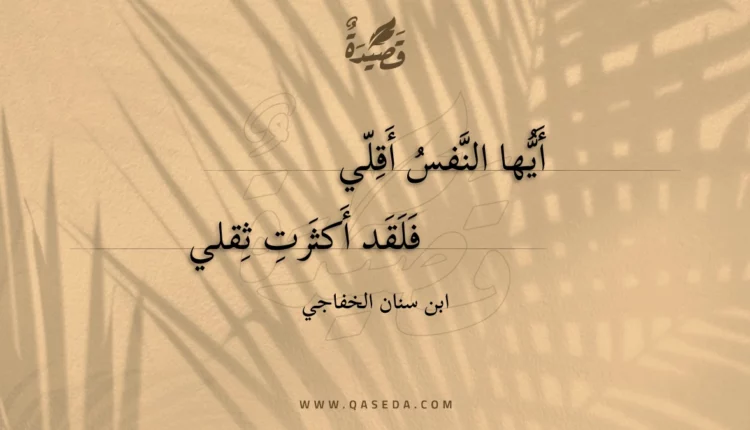 قَصِيْدَةٌ
أَيُّها النَّفسُ أَقِلّي
فَلَقَد أَكثَرَتِ ثِقلي
ابن سنان الخفاجي
WWW.QASEDA.COM